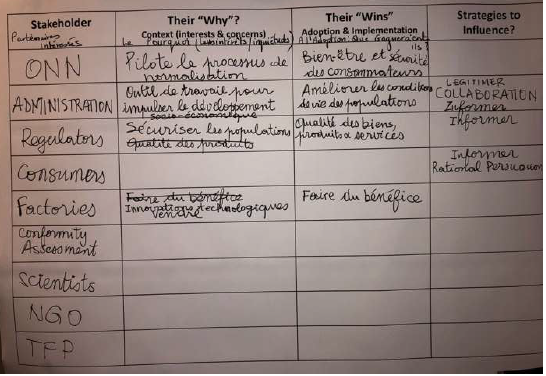 Stakeholder
Partenaires intéressés
Their "Why"?
Context (interests & concerns)
Le Pourquoi (les intérêts/inquiétudes)
Their "Wins"
Adoption & Implementation
A l'Adoption: Que gagneraient ils?
Strategies to
Influence?
ONN
Pilote le processus de
normalisation
Bien-être et sécurité
des consommateurs
ADMINISTRATION
Outil de travail pour
impulser le développement
socio-économique
Améliorer les conditions
de vie des populations
LEGITIMER
COLLABORATION
Informer
Regulators
Sécuriser les populations
Qualité des produits
Qualité des biens,
produits & services
Informer
Consumers
Informer
Rational Persuasion
Factories
Faire du bénéfice
Innovations technologiques
vendre
Faire du bénéfice
Conformity
Assessment
Scientists
NGO
TFP